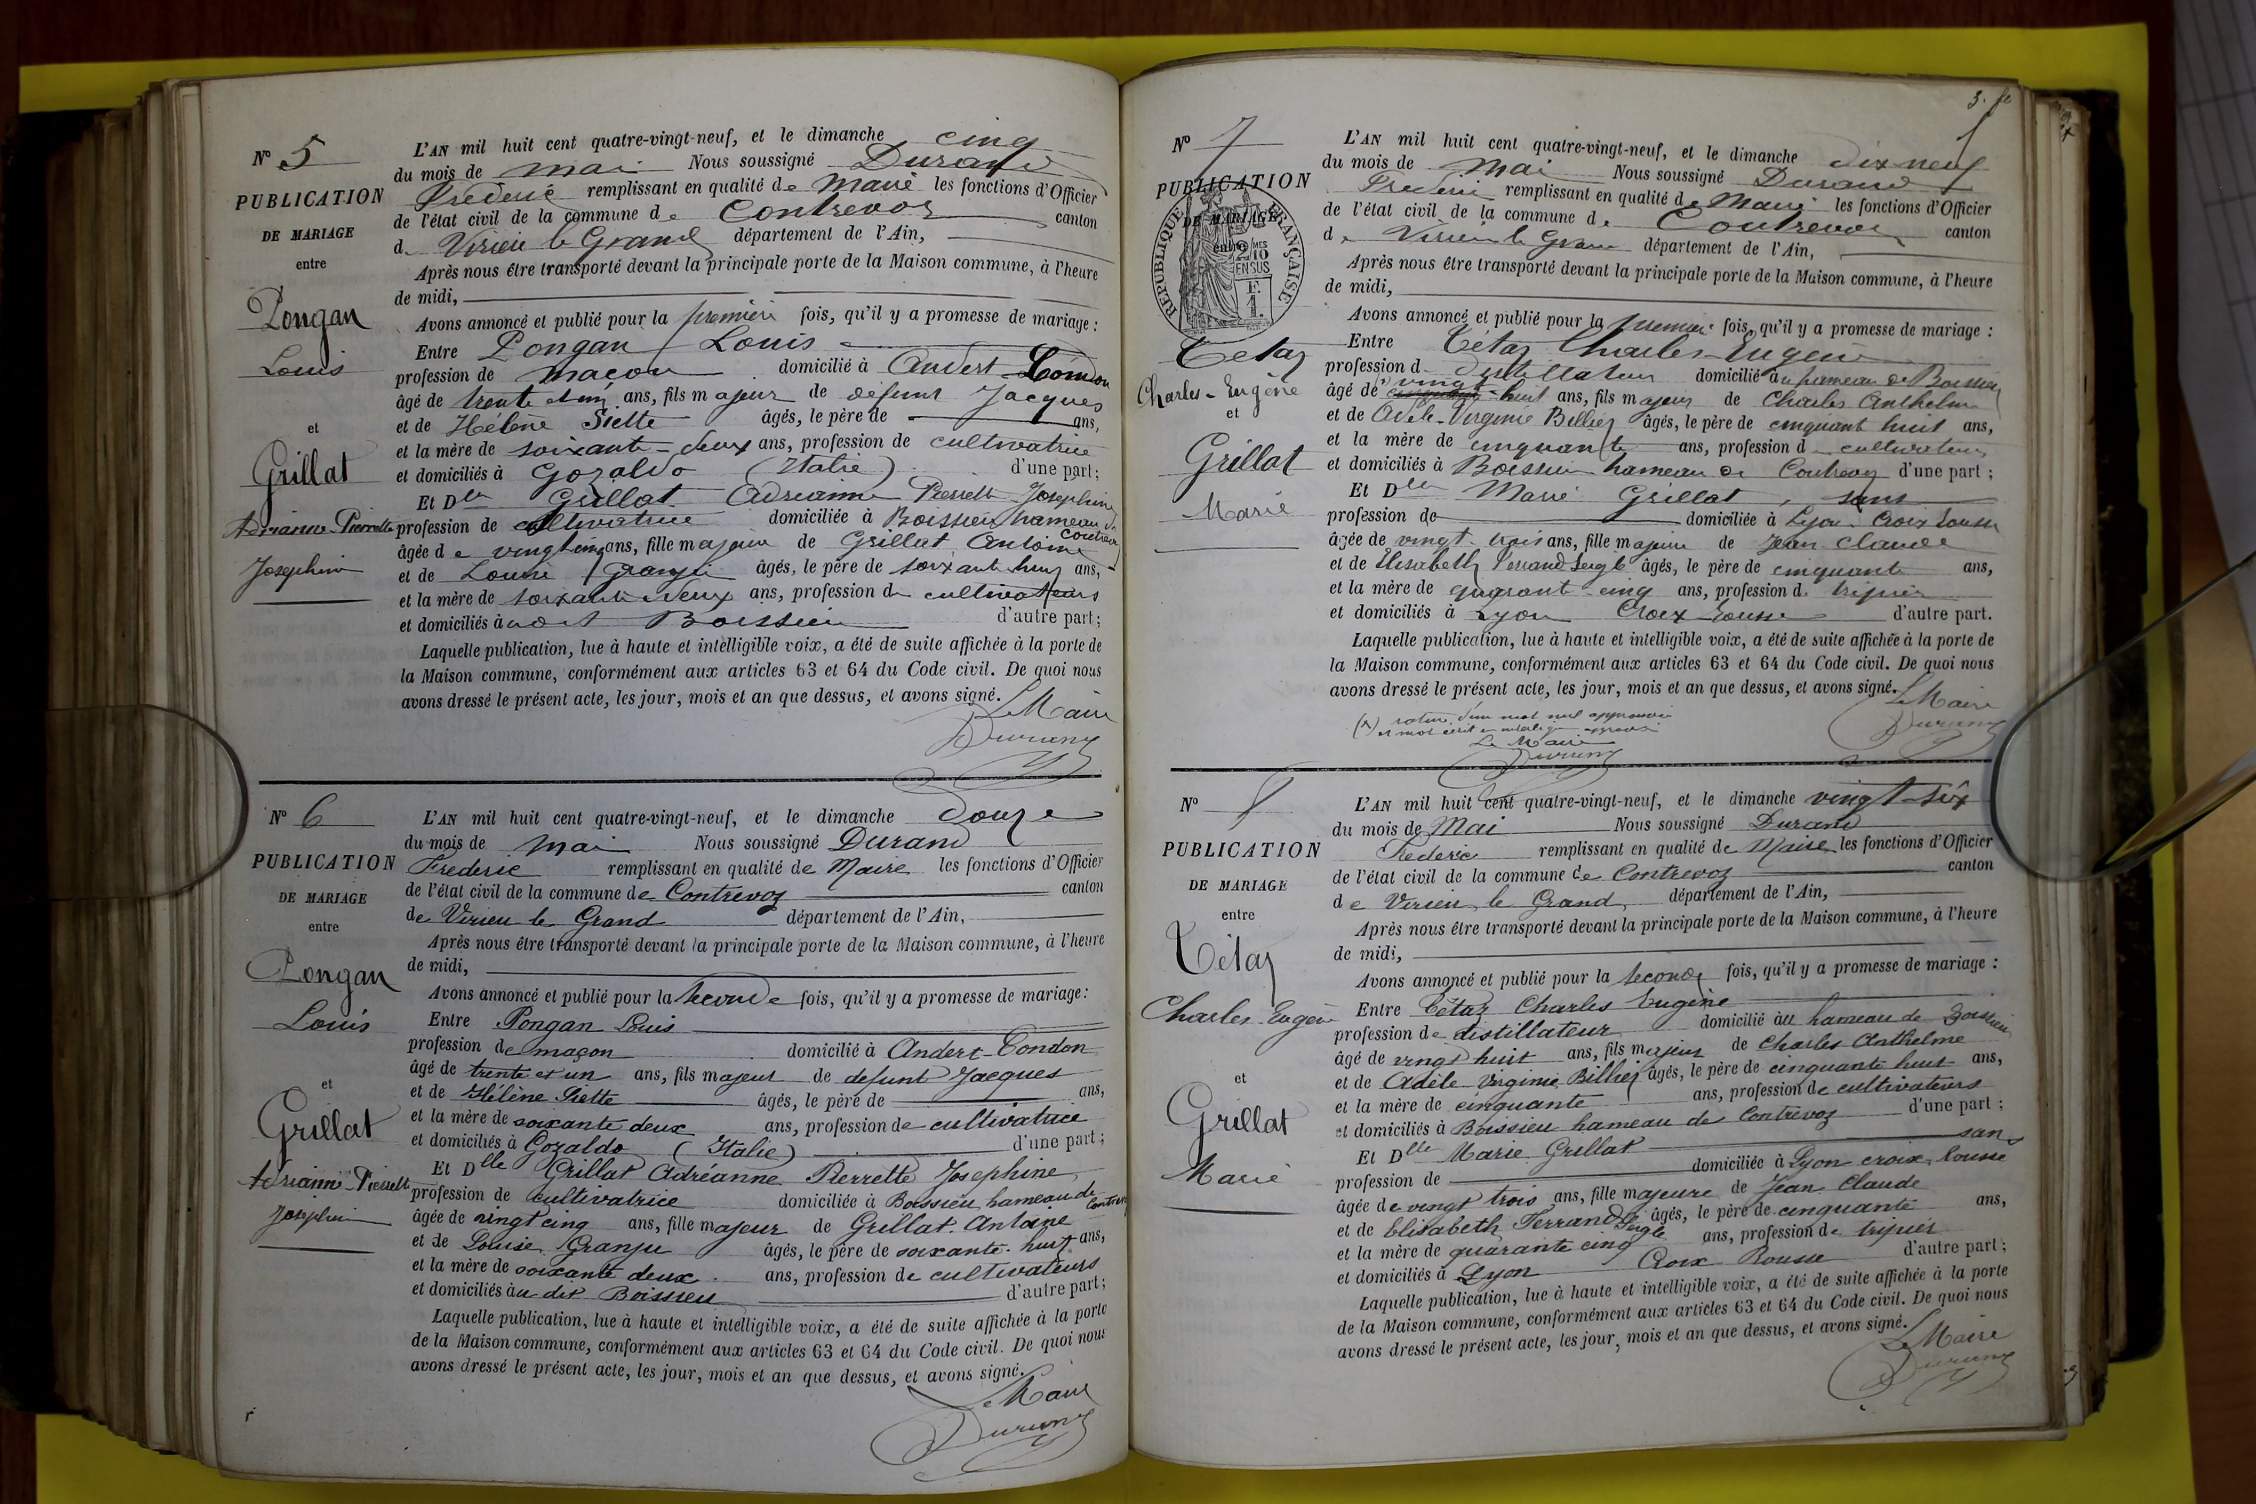 N° 5
PUBLICATION
DE MARIAGE
entre
Pongan
Louis
et
Grillat
Adrianne-Pierrette
Josephine
L'AN mil huit cent quatre-vingt-neuf, et le dimanche cinq
du mois de mai Nous soussigné Durand
Frederic remplissant en qualité de Maire les fonctions d'Officier
de l'état civil de la commune de Contrevoz canton
de Virieu le Grand département de l'Ain,
Après nous être transporté devant la principale porte de la Maison commune, à l'heure
de midi,
Avons annoncé et publié pour la première fois, qu'il y a promesse de mariage :
Entre Pongan Louis
profession de maçon domicilié à Andert-Condon
âgé de trente et un ans, fils majeur de défunt Jacques
et de Hélène Siette âgés, le père de ans,
et la mère de soixante-deux ans, profession de cultivatrice
et domiciliés à Gozaldo (Italie) d'une part;
Et Dlle Grillat Adrianne Pierrette Josephine
profession de cultivatrice domiciliée à Boissieu hameau de Contrevoz
âgée de vingt cinq ans, fille majeure de Grillat Antoine
et de Louise Granju âgés, le père de soixante huit ans,
et la mère de soixante deux ans, profession de cultivateurs
et domiciliés à udit Boissieu d'autre part;
Laquelle publication, lue à haute et intelligible voix, a été de suite affichée à la porte de
la Maison commune, conformément aux articles 63 et 64 du Code civil. De quoi nous
avons dressé le présent acte, les jour, mois et an que dessus, et avons signé.
Le Maire
Durand
N° 6
PUBLICATION
DE MARIAGE
entre
Pongan
Louis
et
Grillat
Adrianne-Pierrette
Josephine
L'AN mil huit cent quatre-vingt-neuf, et le dimanche douze
du mois de mai Nous soussigné Durand
Frederic remplissant en qualité de Maire les fonctions d'Officier
de l'état civil de la commune de Contrevoz canton
de Virieu le Grand département de l'Ain,
Après nous être transporté devant la principale porte de la Maison commune, à l'heure
de midi,
Avons annoncé et publié pour la seconde fois, qu'il y a promesse de mariage:
Entre Pongan Louis
profession de maçon domicilié à Andert-Condon
âgé de trente et un ans, fils majeur de défunt Jacques
et de Hélène Siette âgés, le père de ans,
et la mère de soixante deux ans, profession de cultivatrice
et domiciliés à Gozaldo (Italie) d'une part;
Et Dlle Grillat Adréanne Pierrette Josephine
profession de cultivatrice domiciliée à Boissieu hameau de Contrevoz
âgée de vingt cinq ans, fille majeur de Grillat Antoine
et de Louise Granju âgés, le père de soixante huit ans,
et la mère de soixante deux ans, profession de cultivateurs
et domiciliés à u dit Boissieu d'autre part;
Laquelle publication, lue à haute et intelligible voix, a été de suite affichée à la porte
de la Maison commune, conformément aux articles 63 et 64 du Code civil. De quoi nous
avons dressé le présent acte, les jour, mois et an que dessus, et avons signé.
Le Maire
Durand
N° 7
PUBLICATION
DE MARIAGE
entre
RÉPUBLIQUE FRANÇAISE
Tétaz
Charles-Eugène
et
Grillat
Marie
L'AN mil huit cent quatre-vingt-neuf, et le dimanche dix neuf
du mois de Mai Nous soussigné Durand
Frederic remplissant en qualité de Maire les fonctions d'Officier
de l'état civil de la commune de Contrevoz canton
de Virieu le Grand département de l'Ain,
Après nous être transporté devant la principale porte de la Maison commune, à l'heure
de midi,
Avons annoncé et publié pour la première fois, qu'il y a promesse de mariage :
Entre Tétaz Charles-Eugène
profession d distillateur domicilié au hameau de Boissieu
âgé de vingt huit ans, fils majeur de Charles Anthelme
et de Adèle-Virginie Billiez âgés, le père de cinquant huit ans,
et la mère de cinquante ans, profession d cultivateurs
et domiciliés à Boissieu hameau de Contrevoz d'une part ;
Et Dlle Marie Grillat, sans
profession de domiciliée à Lyon Croix Rousse
âgée de vingt trois ans, fille majeure de Jean Claude
et de Elisabeth Ferrand Seigle âgés, le père de cinquante ans,
et la mère de quarant-cinq ans, profession d. tripier
et domiciliés à Lyon Croix Rousse d'autre part.
Laquelle publication, lue à haute et intelligible voix, a été de suite affichée à la porte de
la Maison commune, conformément aux articles 63 et 64 du Code civil. De quoi nous
avons dressé le présent acte, les jour, mois et an que dessus, et avons signé.
Le Maire
Durand
rature d'un mot nul approuvée
Le Maire
Durand
N° 8
PUBLICATION
DE MARIAGE
entre
Tétaz
Charles-Eugène
et
Grillat
Marie
L'AN mil huit cent quatre-vingt-neuf, et le dimanche vingt-six
du mois de Mai Nous soussigné Durand
Frederic remplissant en qualité de Maire les fonctions d'Officier
de l'état civil de la commune de Contrevoz canton
de Virieu le Grand, département de l'Ain,
Après nous être transporté devant la principale porte de la Maison commune, à l'heure
de midi,
Avons annoncé et publié pour la seconde fois, qu'il y a promesse de mariage :
Entre Tétaz Charles Eugène
profession de distillateur domicilié àu hameau de Boissieu
âgé de vingt huit ans, fils majeur de Charles Anthelme
et de Adèle-Virginie Billiez âgés, le père de cinquante huit ans,
et la mère de cinquante ans, profession de cultivateurs
et domiciliés à Boissieu hameau de Contrevoz d'une part ;
Et Dlle Marie Grillat sans
profession de domiciliée à Lyon croix Rousse
âgée de vingt trois ans, fille majeure de Jean Claude
et de Elisabeth Ferrand Seigle âgés, le père de cinquante ans,
et la mère de quarante cinq ans, profession de tripier
et domiciliés à Lyon Croix Rousse d'autre part ;
Laquelle publication, lue à haute et intelligible voix, a été de suite affichée à la porte
de la Maison commune, conformément aux articles 63 et 64 du Code civil. De quoi nous
avons dressé le présent acte, les jour, mois et an que dessus, et avons signé.
Le Maire
Durand